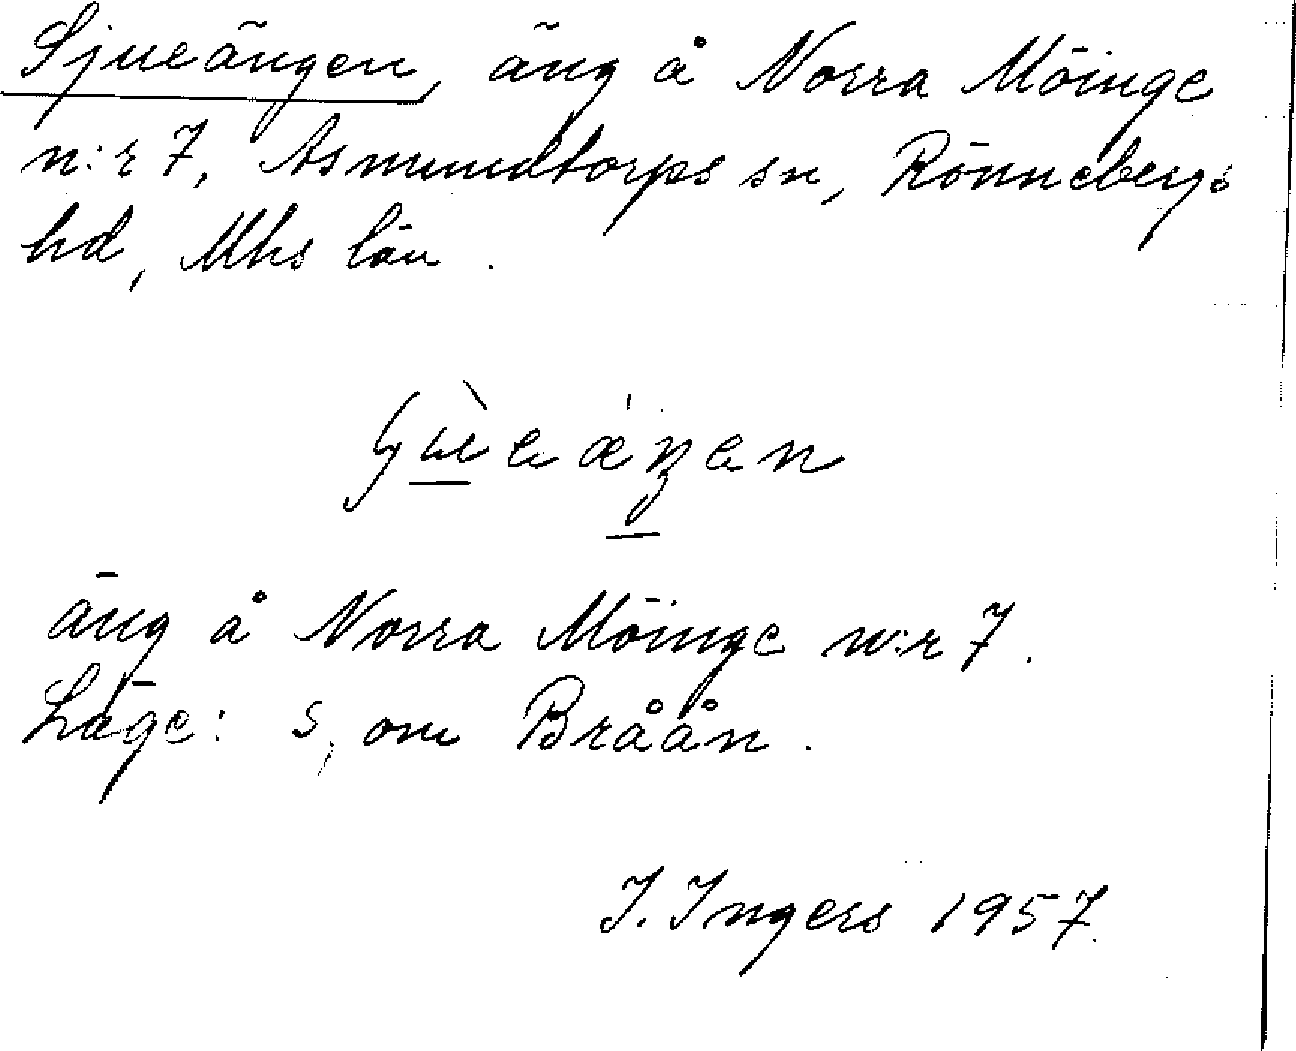 Sjueängen, äng å Norra Möinge
n:r 7, Asmundtorps sn, Rönnebergs
hd, Mhs län.
äng å Norra Möinge n:r 7.
Läge: S, om Bråån.
I. Ingers 1957.